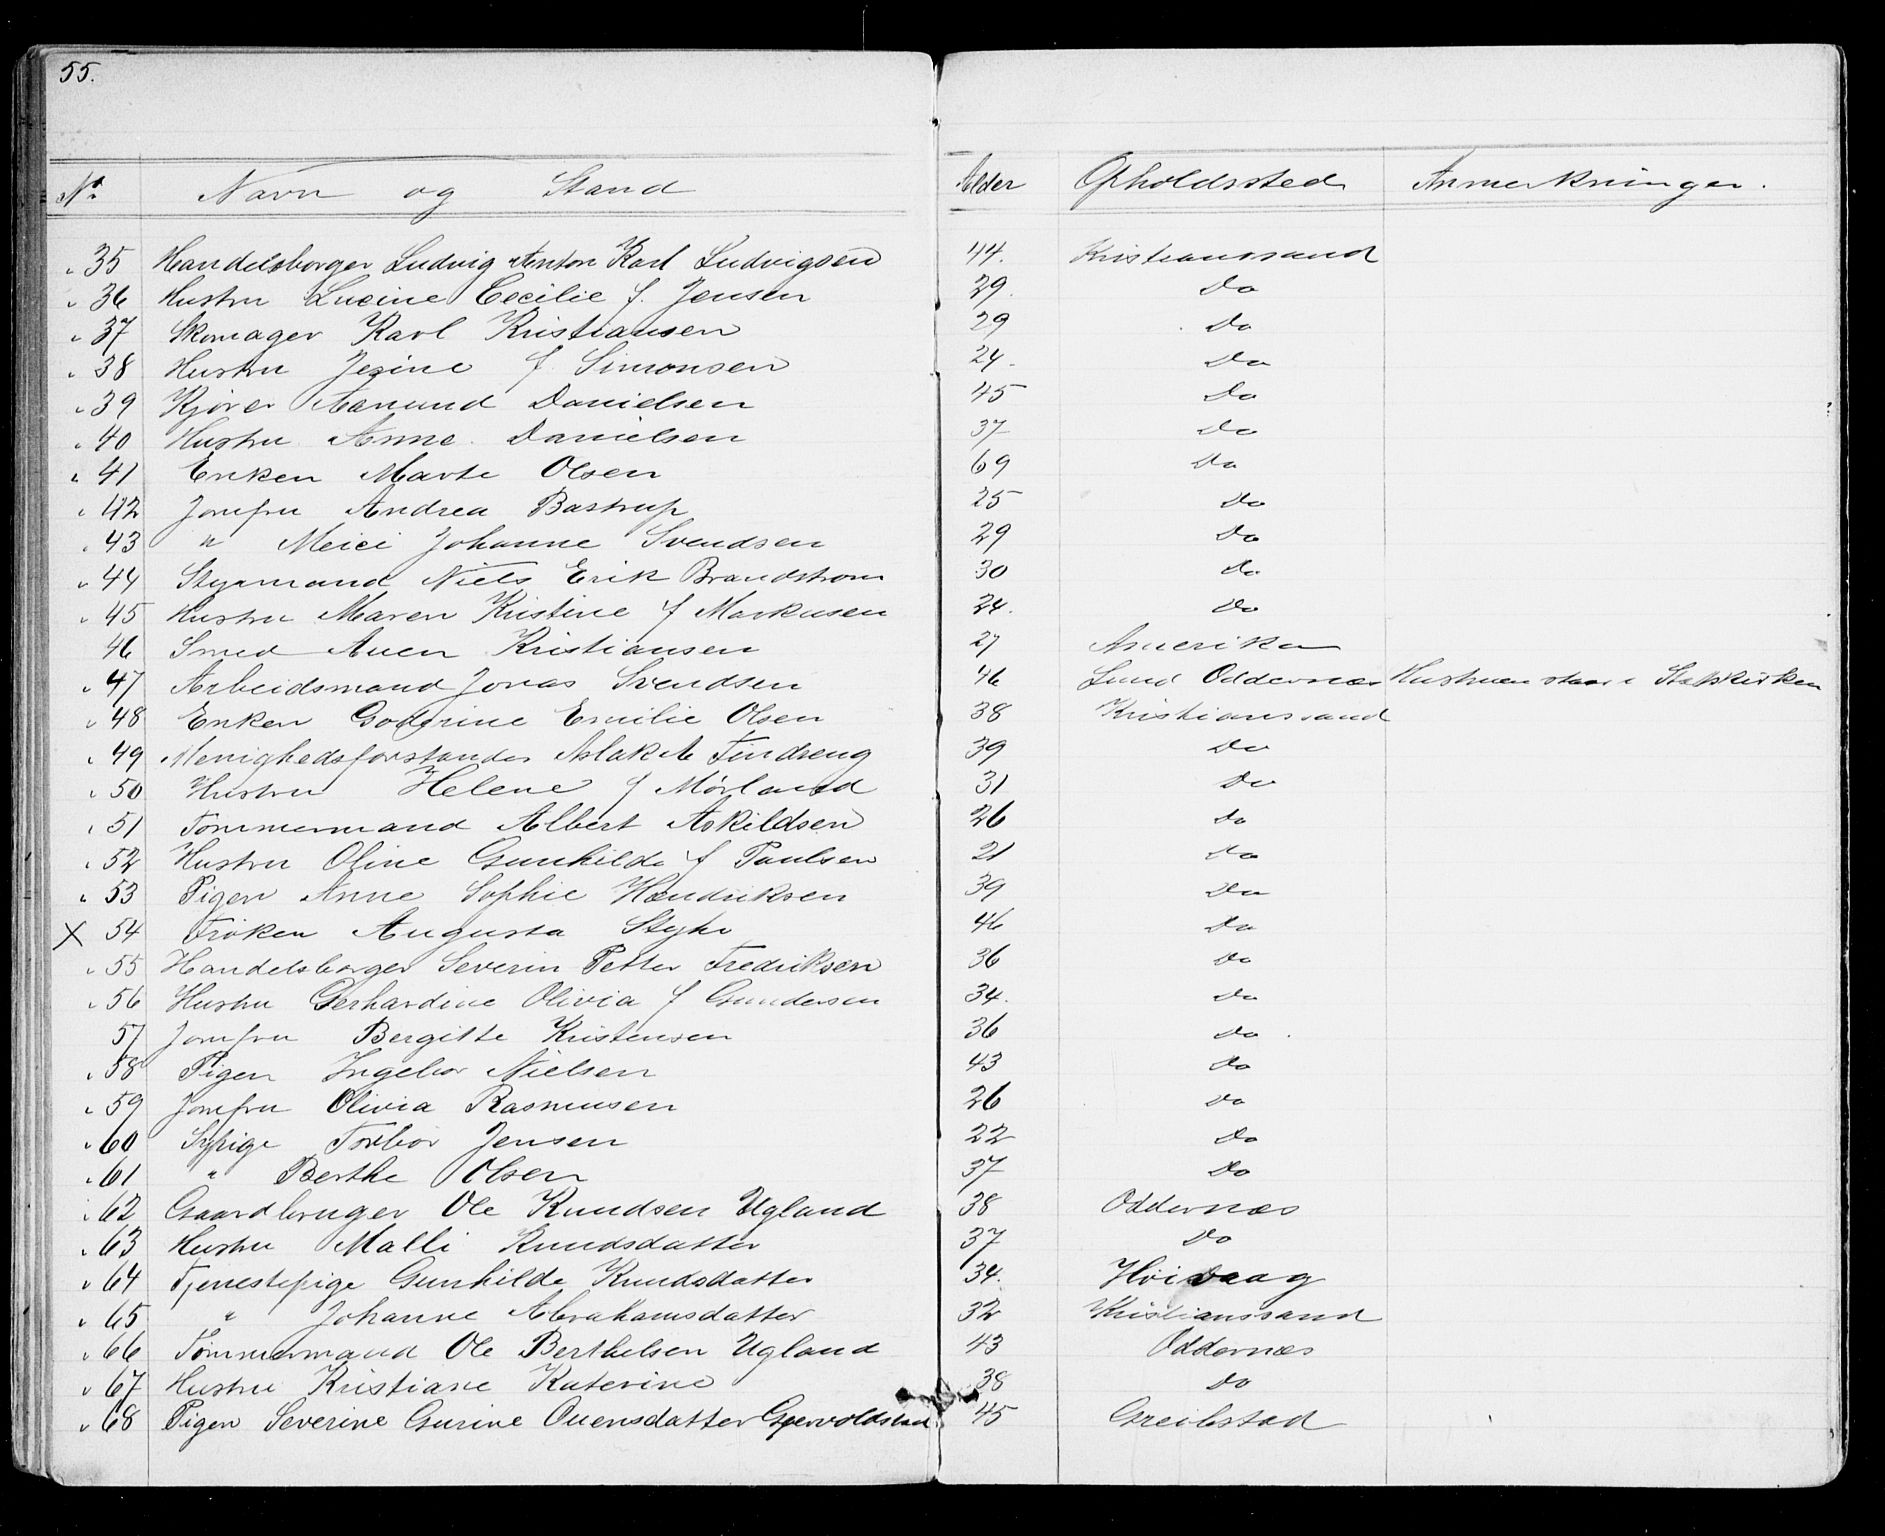 55.
No. Navn og Stand Alder Opholdssted Anmerkninger.
35 Handelsborger Ludvig Anton Karl Ludvigsen 44. Kristianssand
36 Hustru Lucine Cecilie f. Jensen 29. Do
37 Skomager Karl Kristiansen 29 Do
38 Hustru Jesine f Simonsen 24. Do
39 Kjører Aanund Danielsen 45 Do
40 Hustru Anne Danielsen 37 Do
41 Enken Marte Olsen 69 Do
42 Jomfru Andrea Bastrup 25 Do
43 " Meici Johanne Svendsen 29 Do
44 Styrmand Niels Erik Brandstrom 30 Do
45 Hustru Maren Kristine f Markusen 24. Do
46 Smed Auen Kristiansen 27 Amerika
47 Arbeidsmand Jonas Svendsen 46 Lund Oddernæs Hustruen staar i Statskirken
48 Enken Godtrine Emilie Olsen 38 Kristianssand
49 Menighedsforstander Aslak A Findseng 39 Do
50 Hustru Helene f Mørland 31 Do
51 Tømmermand Albert Askildsen 26 Do
52 Hustru Oline Gunhilde f Paulsen 21 Do
53 Pigen Anne Sophie Hendriksen 39 Do
X 54 Frøken Augusta 46 Do
55 Handelsborger Severin Petter Fredriksen 36 Do
56 Hustru Gerhardine Olivia f Gundersen 34. Do
57 Jomfru Bergitte Kristensen 36 Do.
58 Pigen Ingebor Nielsen 43 Do
59 Jomfru Olivia Rasmusen 26 Do
60 Sypige Torbor Jensen 22 Do
61 " Berthe Olsen 37 Do
62 Gaardbruger Ole Knudsen Ugland 38 Oddernæs
63 Hustru Malli Knudsdatter 37 Do
64 Tjenestepige Gunhilde Knudsdatter 34. Høivaag
65 " Johanne Abrahamsdatter 32 Kristianssand
66 Tømmermand Ole Berthelsen Ugland 43 Oddernæs
67 Hustru Kristiane Katerine 38 Do
68 Pigen Severine Gurine Ouensdatter Gjervoldstad 45 Greibstad